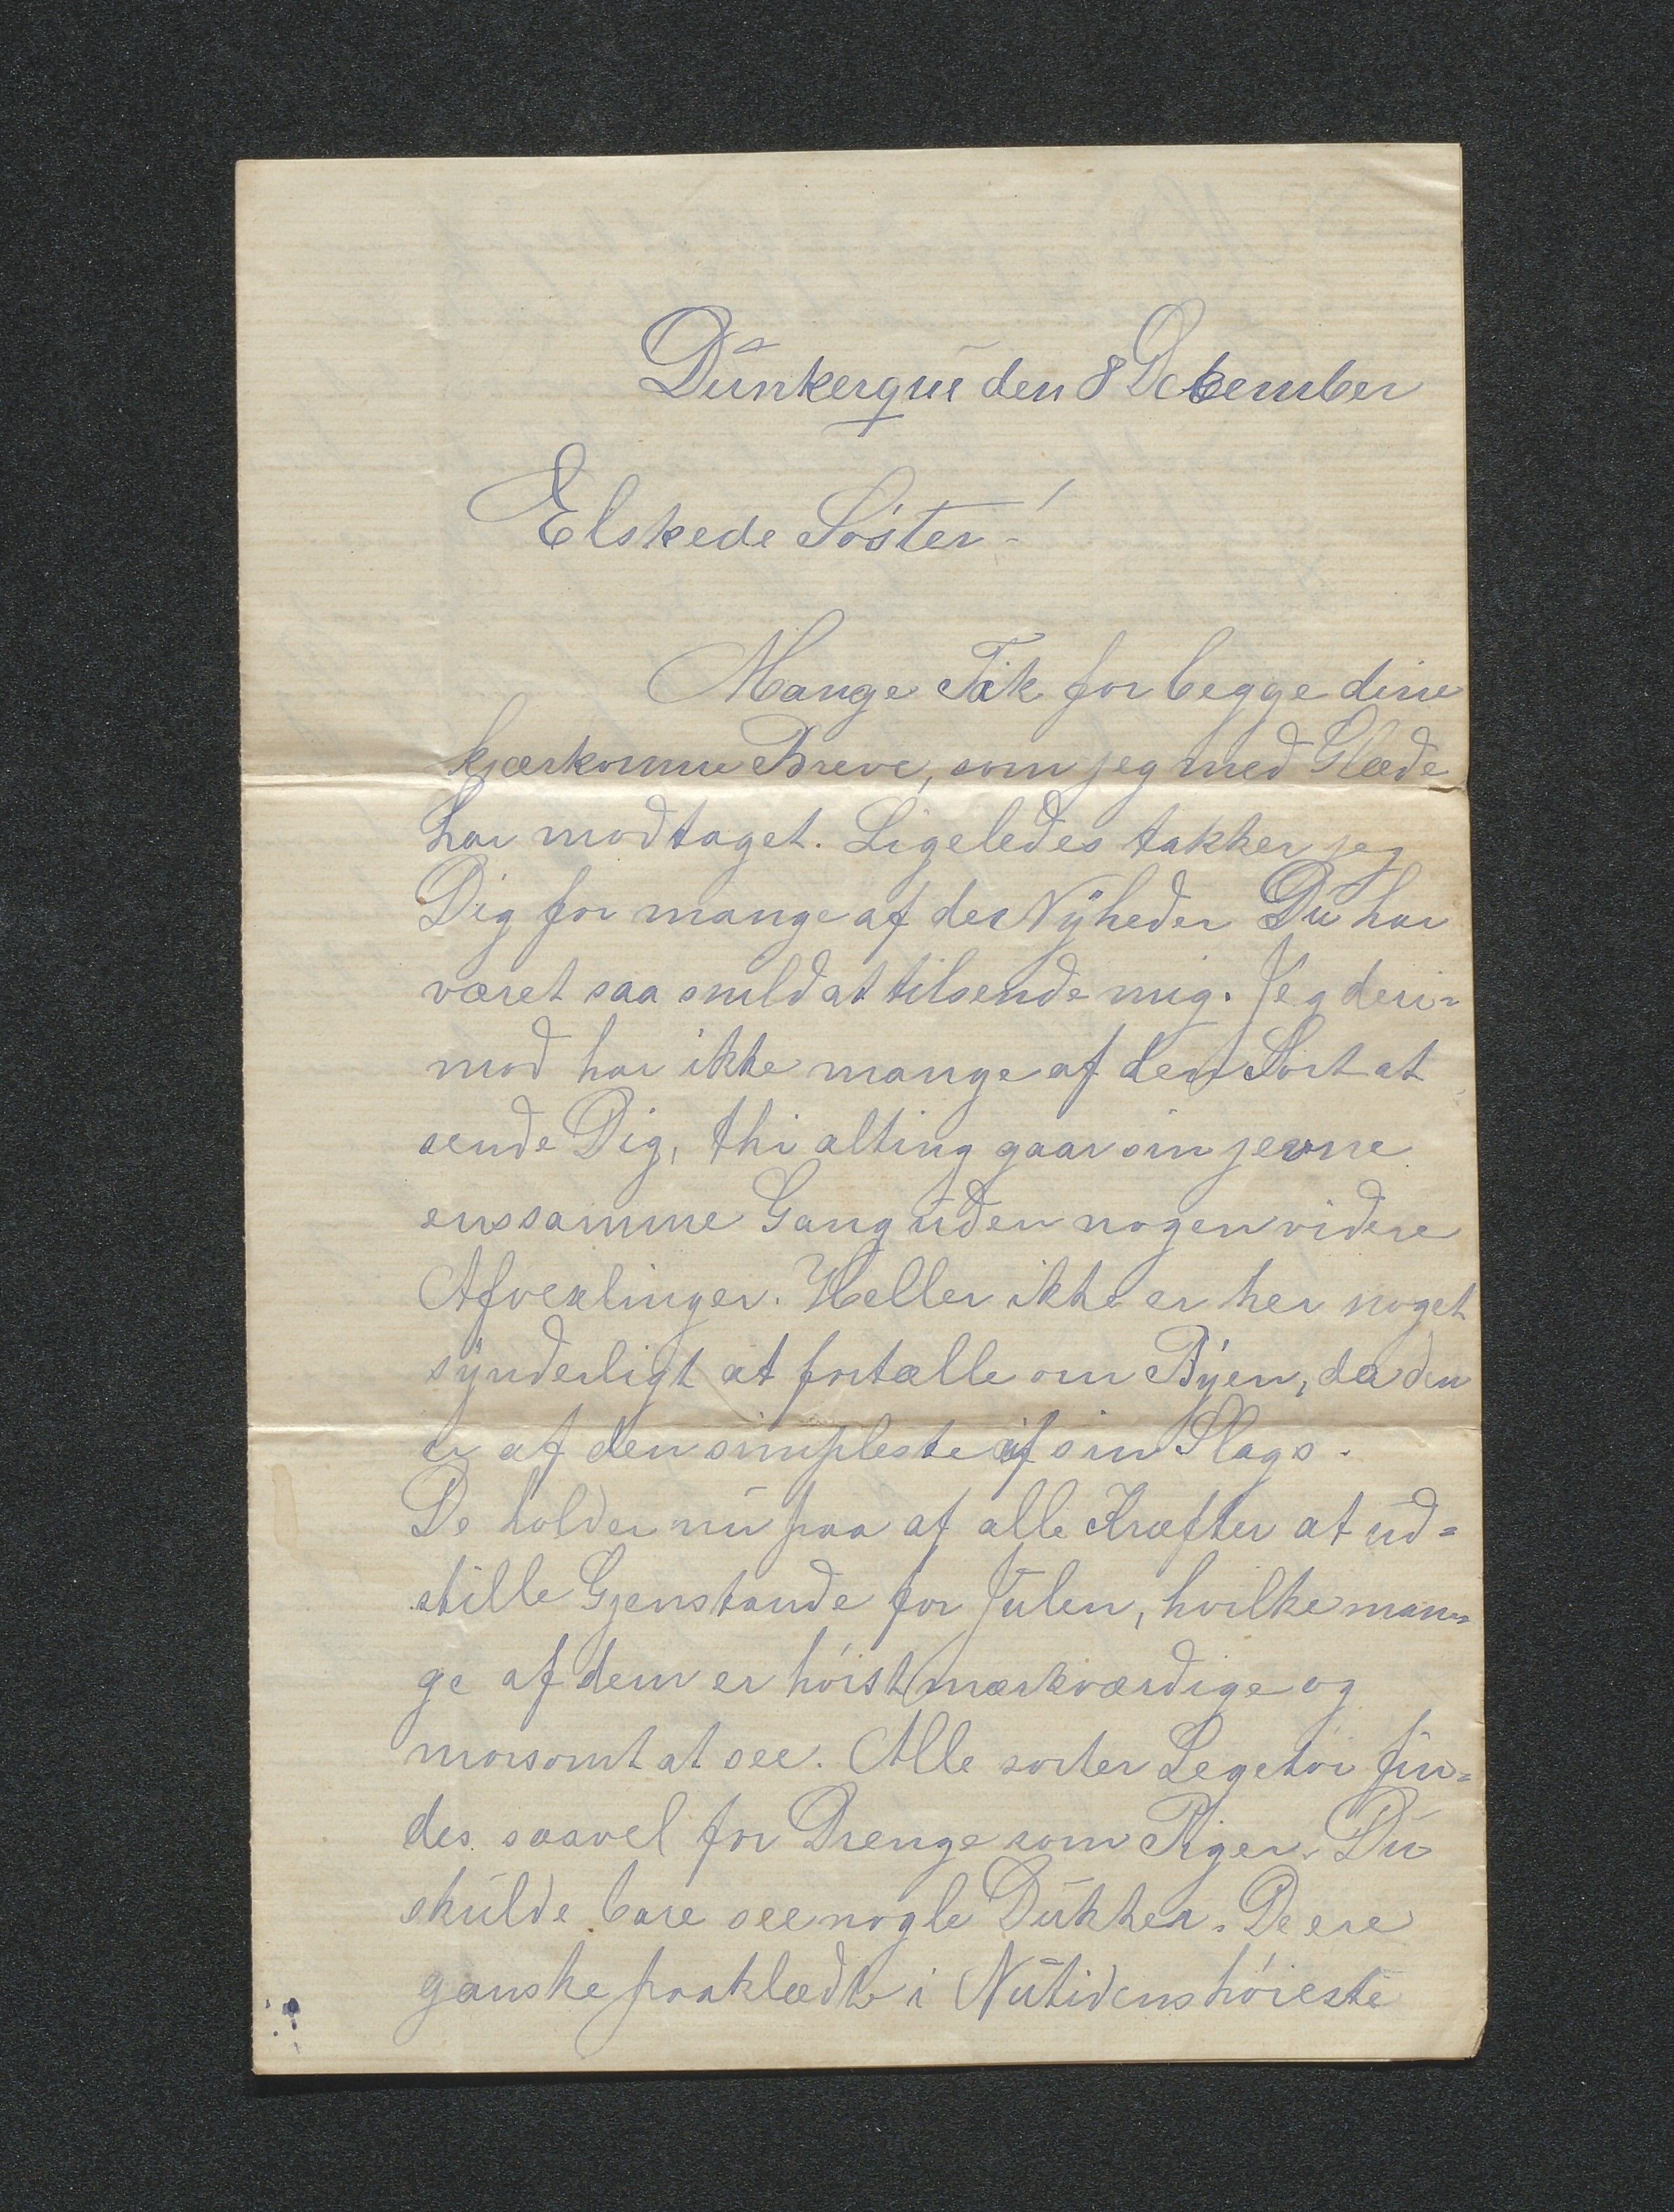 Dunkerque den 8 December
Elskede Söster!
Mange Tak for begge dine
kjærkomne Breve, som jeg med Glæde
har modtaget. Ligeledes takker jeg
Dig for mange af de Nyheder Du har
været saa snild at tilsende mig. Jeg deri-
mod har ikke mange af den Sort at
sende Dig, thi alting gaar sin jevne
enssamme Gang uden nogen videre
Afvexlinger. Heller ikke er her noget
synderligt at fortælle om Byen, da den
er af den simpleste af sin Slags.
De holder nu paa af alle Kræfter at ud=
stille Gjenstande for Julen, hvilke man=
ge af dem er höist mærkværdige og
morsomt at see. Alle sorter Legetöi fin=
des saavel for Drenge som Piger. Du
skulde bare see nogle Dukker. De ere
ganske paaklædte i Nutidens höieste